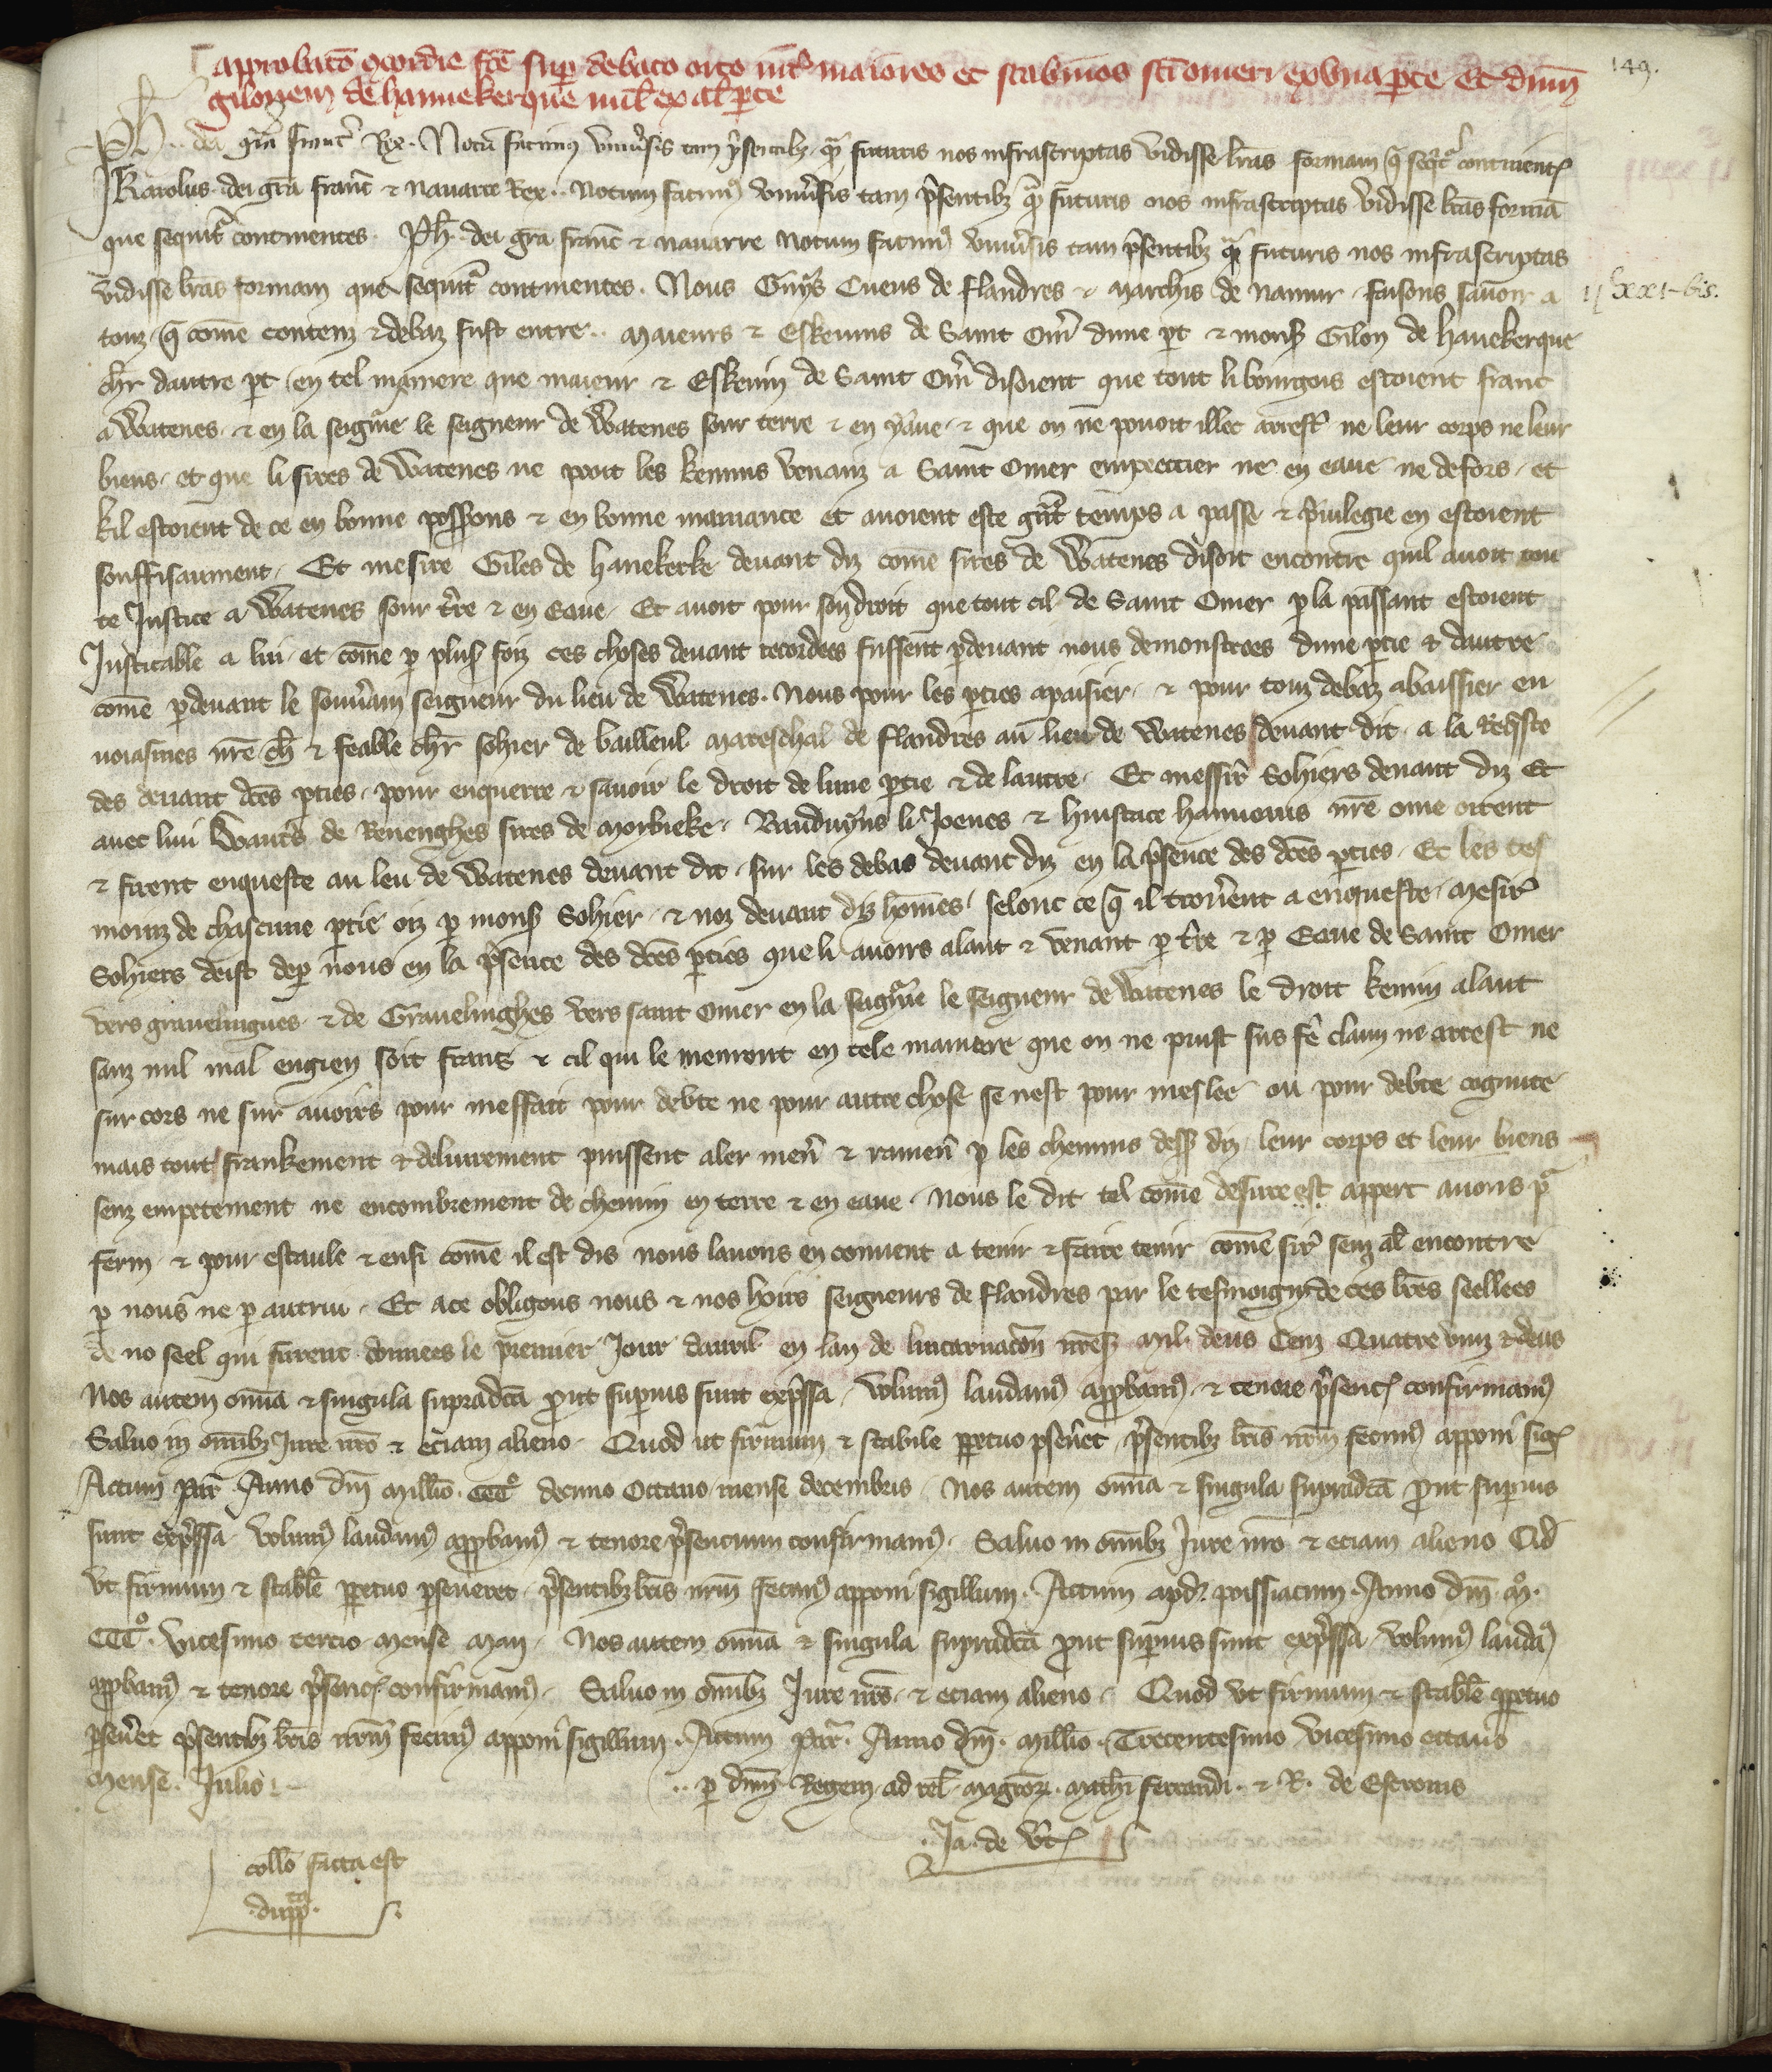 approbatō ꝯcordie fcē sup debato orto int̄ maiores et scabinos scī omeri ex vna pte et dnm̄
gilonem de hannekerque mil̄ ex alt̄ pte
149.
Ph. dei gr̄a francͬ Rex. Notū facimꝰ vniūsis tam p̄sentibꝫ qͣ̄ futuris nos infrascriptas vidisse lr̄as formam q̄ seqͥtͬ continent
Karolus dei gr̄a franc̄ & nauarre Rex. Notum facimꝰ vniūsis tam p̄sentibꝫ qͣ̄ futuris nos infrascriptas vidisse lr̄as formā
que sequitͬ continentes. Ph̄. dei gr̄a franc̄ & nauarre Notum facimꝰ vniūsis tam p̄sentibꝫ qͣ̄ futuris nos infrascriptas
vidisse lr̄as formam que sequitͬ continentes. Nous Guys Cuens de flandres & marchis de namur faisons sauoir a
ij lxxi-bis.
touz q̄ com̄e contenz & debaz fust entre .. maieurs & Eskeuins de Saint Om̄ dune pt & mons̄ Gilon de hauekerque
chr̄ dautre pt en tel maniere que maieur & Eskeuin de Saint Om̄ disoient que tout li bourgois estoient franc
a Watenes & en la seign̄ie le seigneur de Watenes sour terre & en yaue & que on ne pouoit illec arrest̄ ne leur corps ne leur
biens et que li sires de Watenes ne pooit les kemins venanz a Saint Omer empeechier ne en eaue ne defors et
kil estoient de ce en bonne possess̄ons & en bonne maniance et auoient este gn̄t temps a passe & p̄uilegie en estoient
souffisaument. Et mesire Giles de hauekerke deuant diz com̄e sires de Watenes disoit encontre quil auoit tou
te Justice a Watenes sour t̄re & en Eaue. Et auoit pour son droit que tout cil de Saint Omer p la passant estoient
Justicable a lui et com̄e p plus̄ foiz ces choses deuant recordees fussent pdeuant nous demonstrees dune ptie & dautre
com̄e pdeuant le souūain seigneur du lieu de Watenes. Nous pour les pties apaisier & pour touz debaz abaissier en
uoiasmes nr̄e ch̄ & feable chr̄ Sohier de bailleul mareschal de flandres au lieu de Watenes deuant dit a la Reqͥste
des deuant dc̄es pties pour enquerre & sauoir le droit de lune ptie & de lautre. Et messir̄ Sohiers deuant diz Et
auec lui Waut̄s de Renenghes sires de Morbieke. Bauduyns li Joenes & huistace hauuerus nr̄e ome oirent
& firent enqueste au leu de Watenes deuant dit sur les debas deuant diz en la p̄sence des dc̄es pties. Et les tes
moinz de chascune ptie oiz p mons̄ Sohier & noz deuant diz hōmes selonc ce q̄ il trouūent a enqueste mesir̄
Sohiers deist dep nous en la p̄sence des dc̄es pties que li auoirs alant & venant p t̄re & p Eaue de Saint Omer
vers grauelingues & de Grauelinghes vers saint Omer en la seign̄ie le seigneur de Watenes le droit kemin alant
sanz nul mal engien soit frans & cil qui le menront en tele maniere que on ne puist sus fē claim ne arrest ne
sur cors ne sur auoirs pour meffait pour debte ne pour autre chose se nest pour meslee ou pour debte cognute
mais tout frankement & deliurement puissent aler men̄ & ramen̄ p les chemins dess̄ diz leur corps et leur biens
senz empeecement ne encombrement de chemin en terre & en eaue. Nous le dit tel com̄e desure est appert auons pͬ
ferm & pour estaule & ensi com̄e il est dis nous lauons en conuent a tenir & faire tenir com̄e sir̄ senz al̄ encontre
p nous ne p autrui. Et a ce obligons nous & nos hoirs seigneurs de flandres par le tesmoign̄ de ces lr̄es seellees
de no seel qui furent donnees le premier Jour dauril en lan de lincarnacōn nr̄es̄ mil. deus Cenz Quatre vinz & deus
Nos autem om̄ia & singula supradc̄a prout supius sunt exp̄ssa. volumꝰ laudamꝰ appbamꝰ & tenore p̄senc̄ confirmamꝰ
Saluo in om̄ibꝫ Jure nr̄o & eciam alieno. Quod ut firmum & stabile ppetuo pseūet p̄sentibꝫ lr̄is nr̄m fecimꝰ apponi siḡ
Actum par̄ Anno dm̄ millīo. CCC̊ decimo Octauo mense decembris. Nos autem om̄ia & singula supradc̄a prout supius
sunt exp̄ssa volumꝰ laudamꝰ appbamꝰ & tenore p̄sencium confirmamꝰ. Saluo in om̄ibꝫ Jure nr̄o & eciam alieno Qd̄
vt firmum & stabile ppetuo pseueret p̄sentibꝫ lr̄is nr̄m fecimꝰ apponi sigillum. Actum apd̄ poissiacum. Anno dm̄. m̊.
CCC̊. vicesimo tercio mense Maii. Nos autem om̄ia & singula supradc̄a prout supius sunt exp̄ssa volumꝰ laudaꝰ
appbamꝰ & tenore p̄senc̄ confirmamꝰ. Saluo in om̄ibꝫ Jure nr̄o & eciam alieno. Quod vt firmum & stabile ppetuo
pseūet p̄sentibꝫ lr̄is nr̄m fecimꝰ apponi sigillum. Actum Par̄. Anno dm̄. millīo. Trecentesimo vicesimo octauo
mense Julio.
.. p dnm̄ Regem ad rel̄ magrōꝝ. mathi ferrandi & R. de
Ja. de v̄t
collō facta est
dupp̄